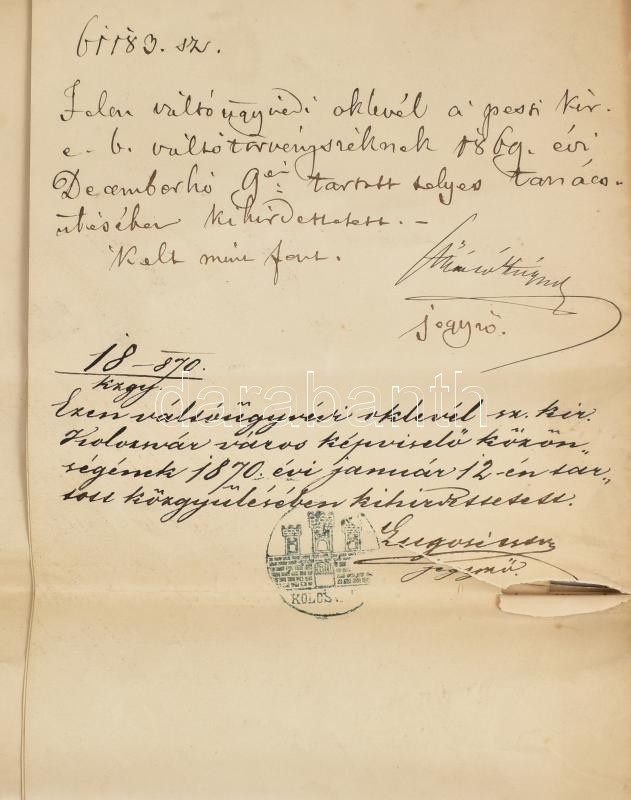 61183. sz.
Jelen váltóügyvédi oklevél a pesti kir.
e. b. váltótörvényszéknek 1869. évi
Decemberhó 9én tartott teljes tanács-
ülésében kihirdettetett. –
Kelt mint fent.
jegyző.
18 – 870.
kzgy.
Ezen váltóügyvédi oklevél sz. kir.
Kolozsvár város képviselő közön„
ségének 1870. évi január 12-én tar„
tott közgyűlésében kihirdettetett.
jegyző.
KOLOS
darabanth